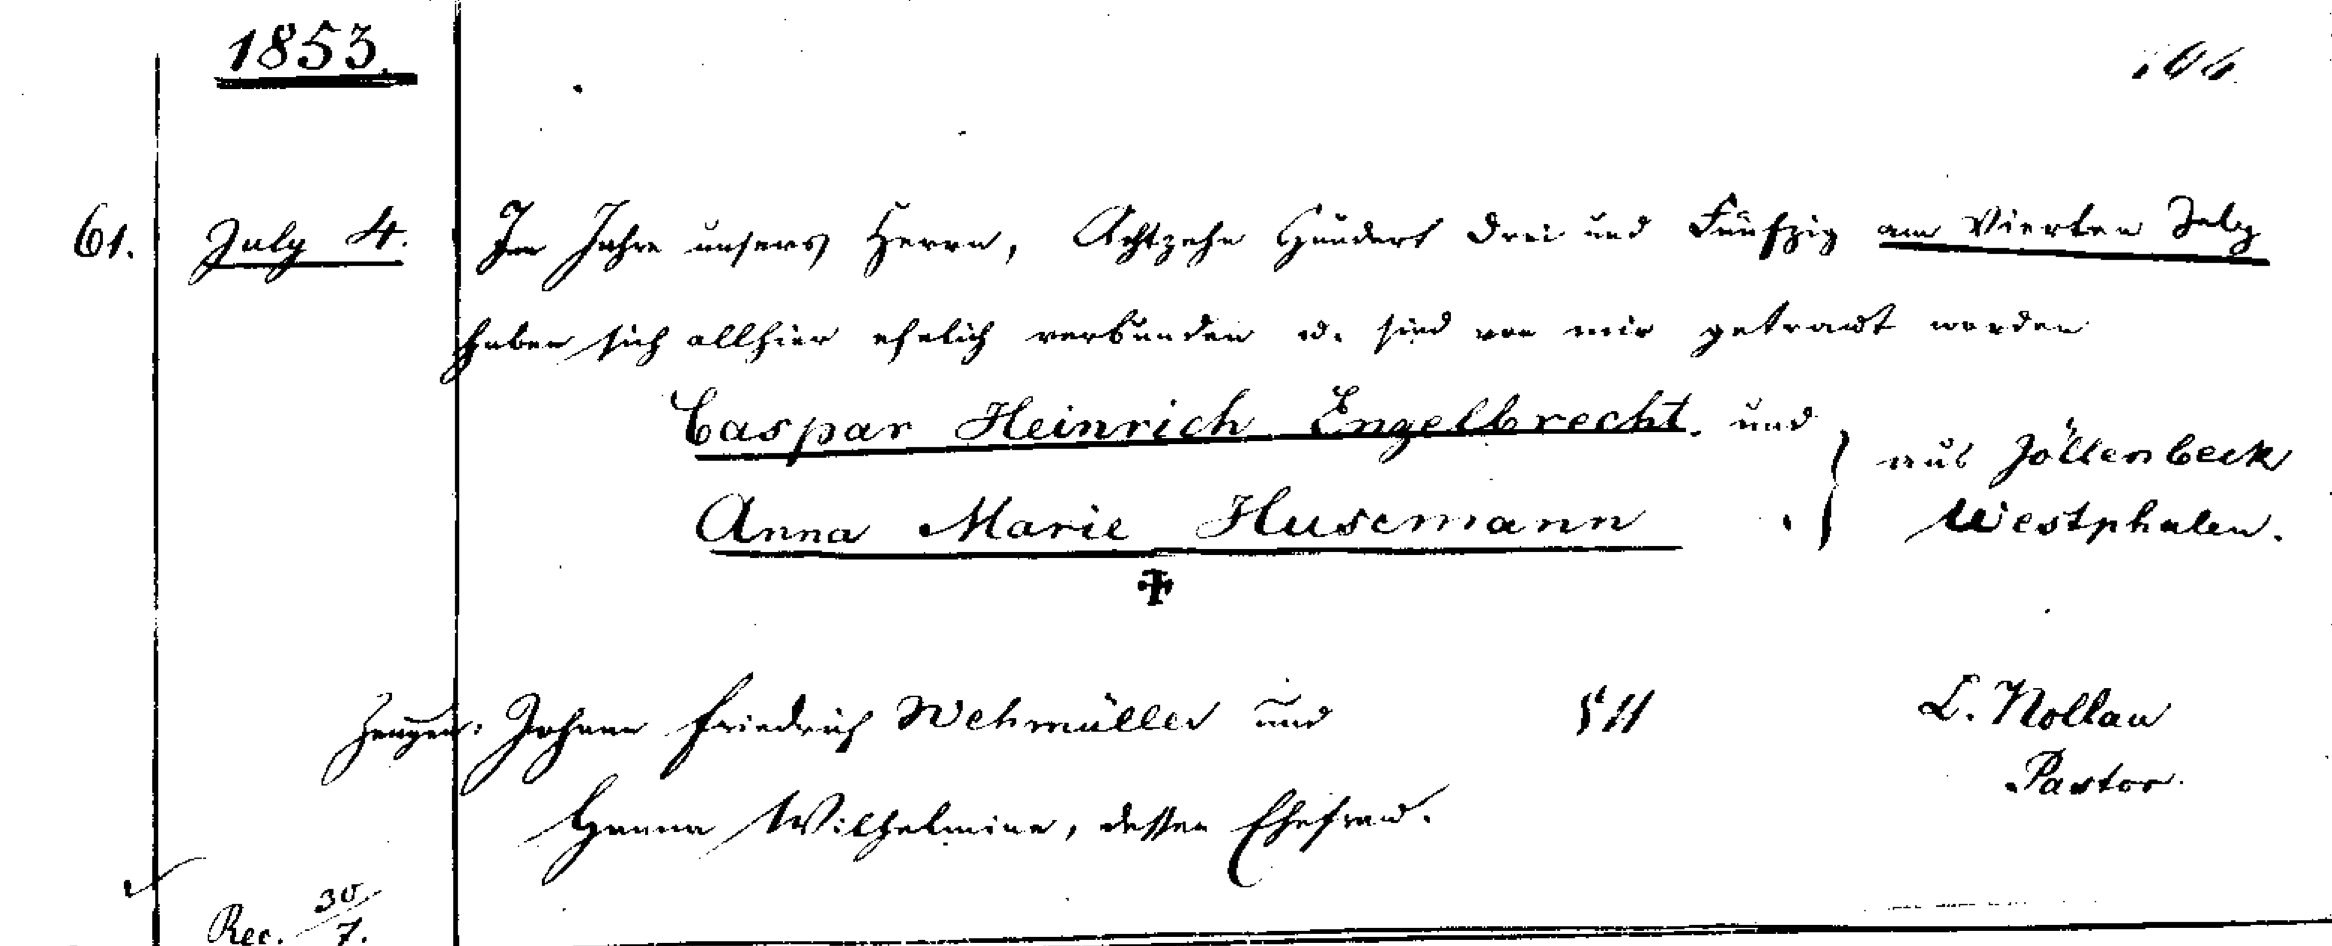 1853.
106
61. July 4. Im Jahre unsers Herrn, Achtzehn Hundert drei und Fünfzig am Vierten July
haben sich allhier ehelich verbunden u. sind von mir getraut worden
Caspar Heinrich Engelbrecht. und
aus Jöllenbeck
Anna Marie Husemann
Westphalen.
Zeugen: Johann Friedrich Wehmüller und
L. Nollau
Pastor.
Hanna Wilhelmine, dessen Ehefrau.
Rec. 30/7.